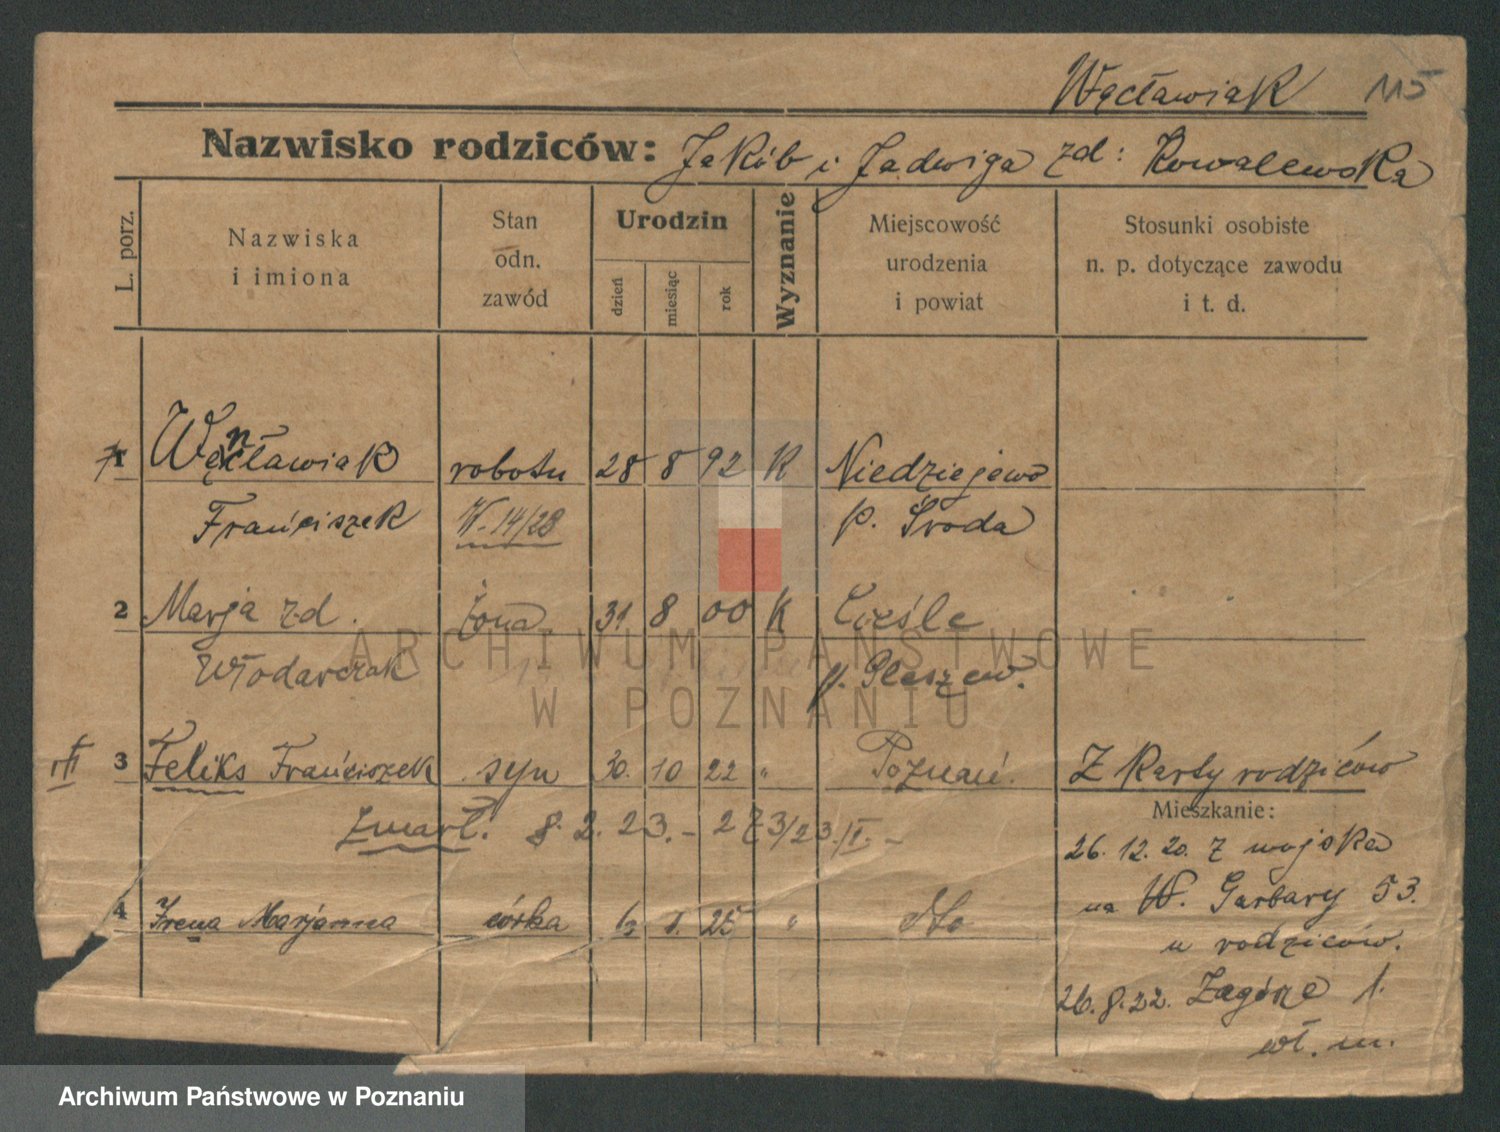 Węcławiak 115
Nazwisko rodziców: Jakób i Jadwiga zd: Kowalewska
L. porz.
Nazwiska
i imiona
Stan
odn.
zawód
Urodzin
dzień
miesiąc
rok
Wyznanie
Miejscowość
urodzenia
i powiat
Stosunki osobiste
n. p. dotyczące zawodu
i t. d.
1 Węncławiak robotn 28 8 92 K Niedziejewo
Frańciszek W. 14/28 p. Środa
2 Marja z-d. żona 31. 8 00 K Cieśle
Włodarczak p. Pleszew.
III 3 Feliks Frańciszek syn 30. 10 22 " Poznań. Z karty rodziców
Mieszkanie:
Zmarł. 8. 2. 23. - 273/23/I. -
26. 12. 20. z wojska
4 Irena Marjanna córka 6 I. 25 " dto
na W. Garbary 53.
u rodziców.
26. 8. 22. Zagórze 1.
wł. m.
ARCHIWUM PAŃSTWOWE
W POZNANIU
Archiwum Państwowe w Poznaniu